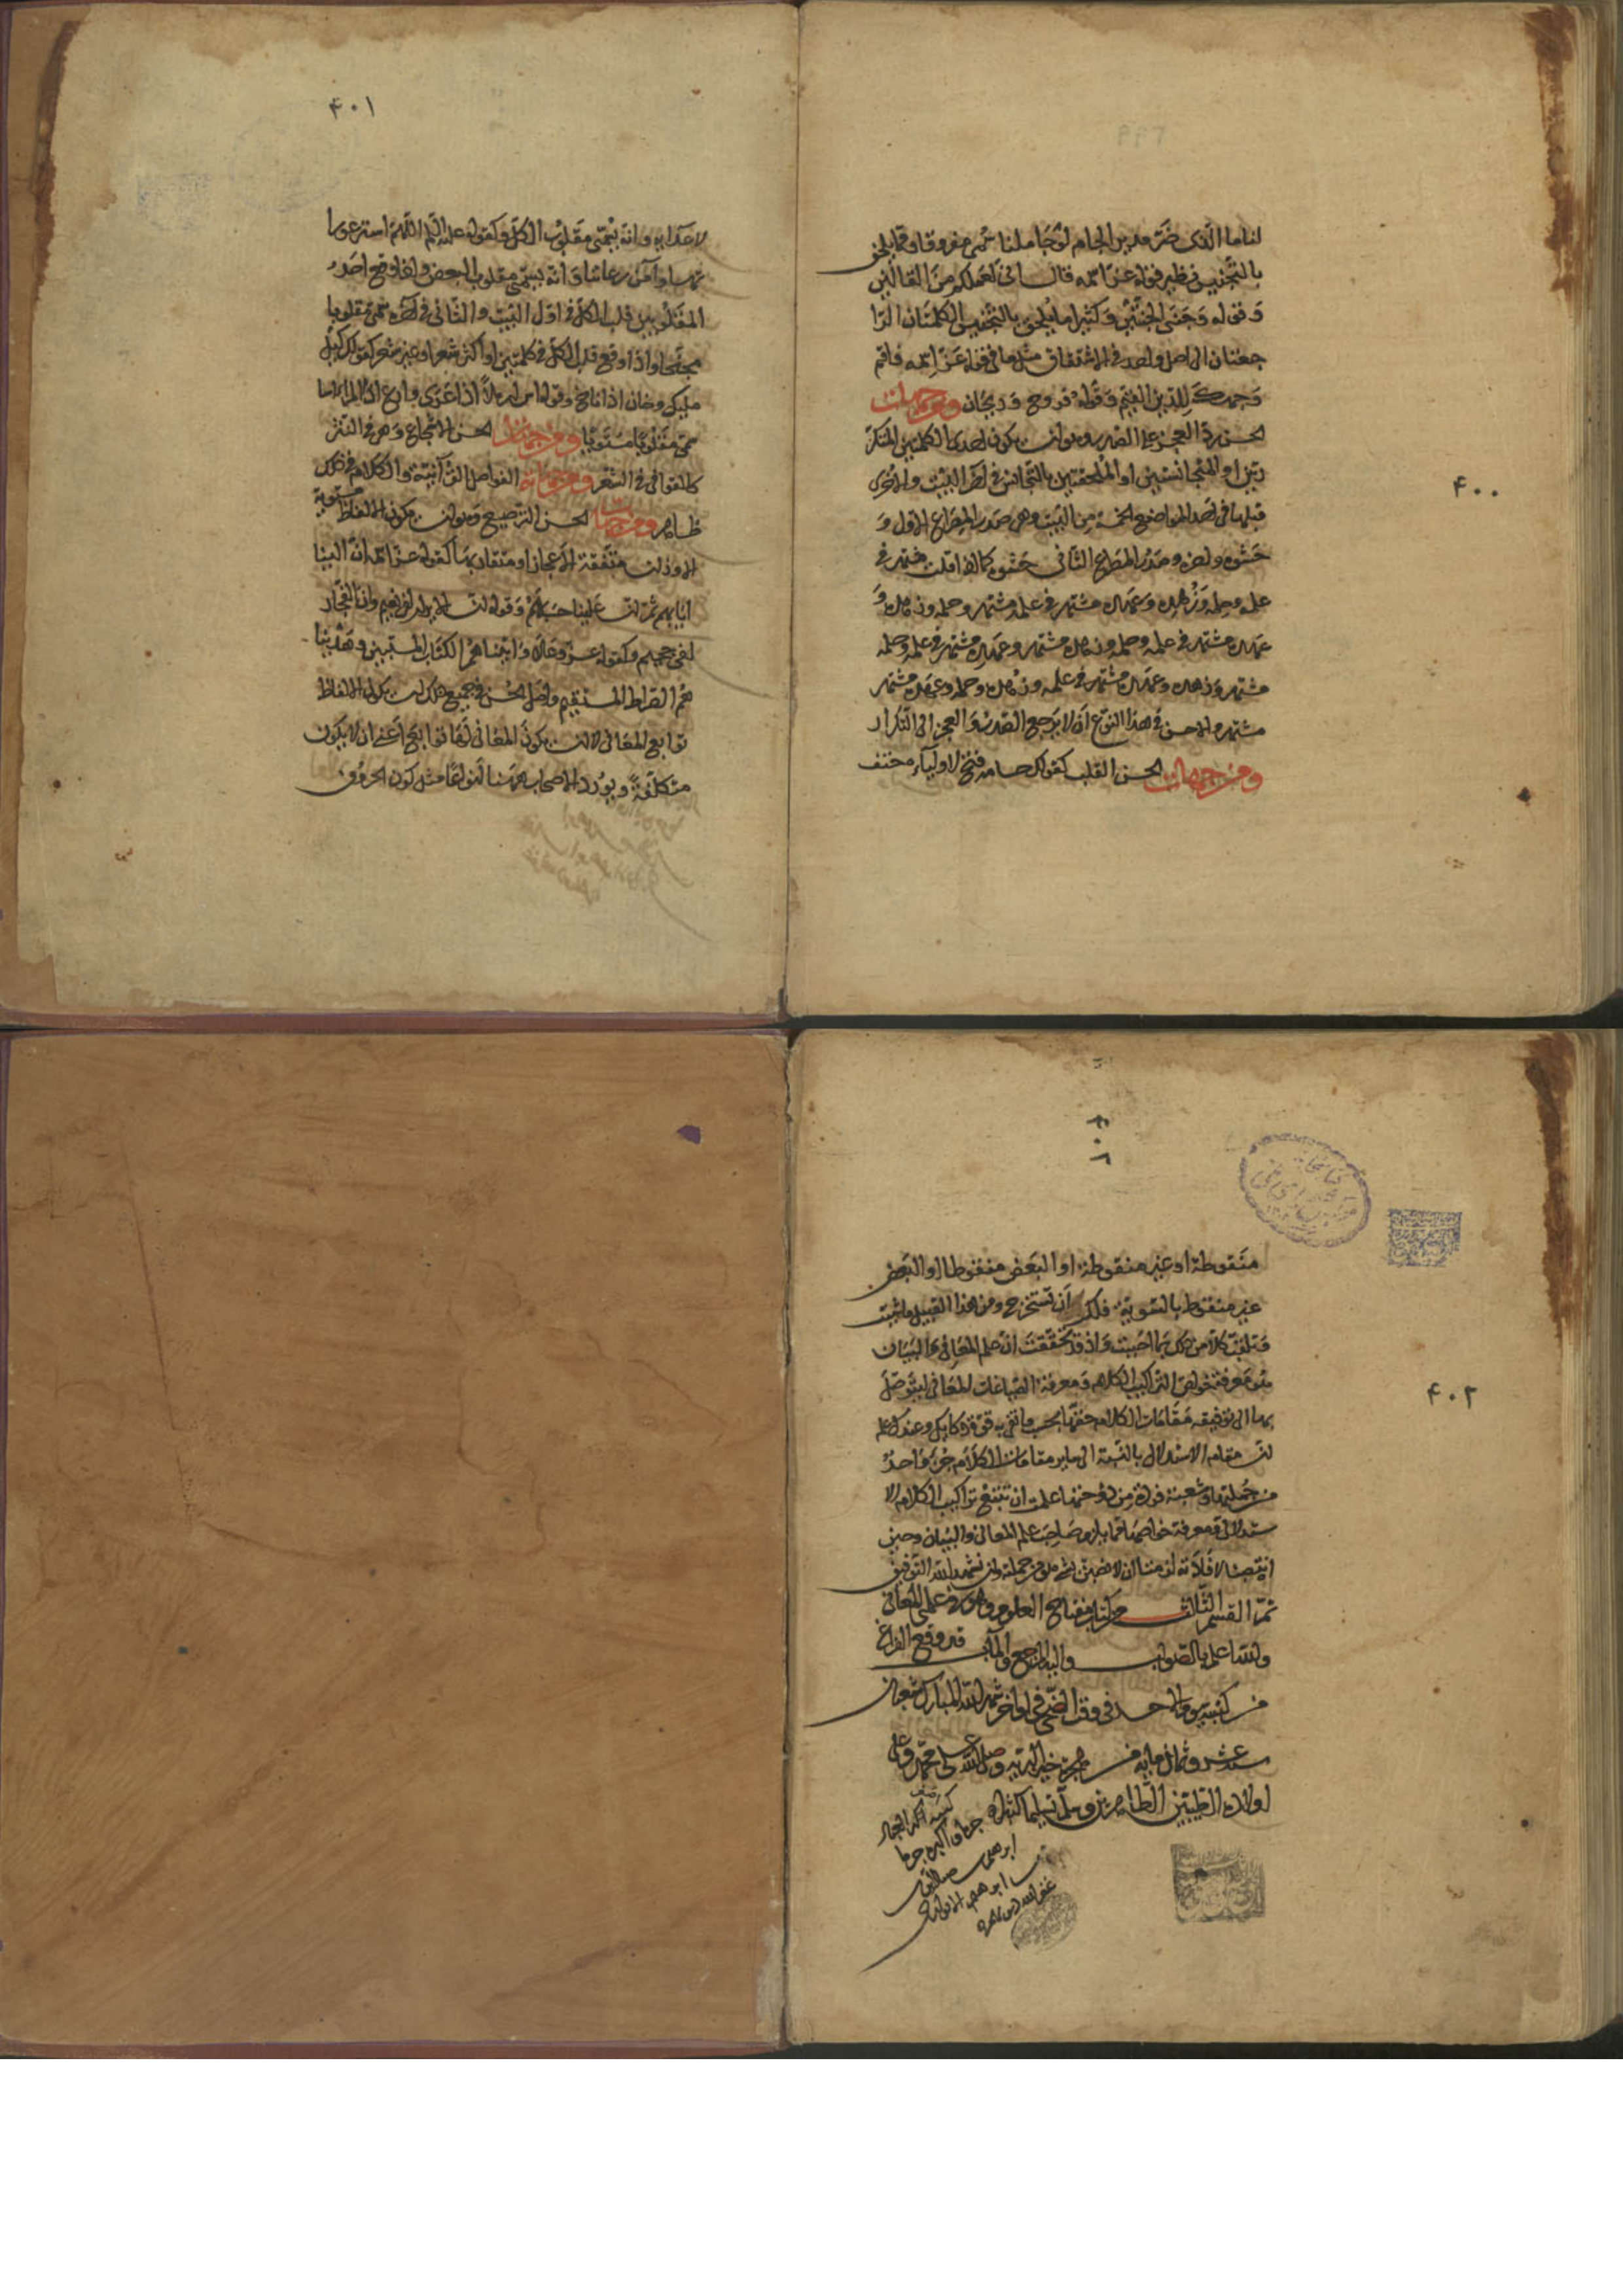 ۴۰۰
لنا ما الذی ضرّ مدیر الجام لو جاملنا سمی مفروقا ومما یلحق
بالتجنیس نظیر قوله عز اسمه قال انی لعملکم من القالین
وقوله وجنی الجنتین وکثیرا ما یلحق بالتجنیس الکلمتان الرا
جعتان الی اصل واحد فی الاشتقاق مثل ما فی قوله عز اسمه فاقم
وجهک للدین القیم وقوله فروح وریحان ومن جهات
الحسن رد العجز علی الصدر وهو ان یکون احدی الکلمتین المتکر
رتین او المتجانستین او الملحقتین بالتجانس فی آخر البیت والاخری
قبلها فی احد المواضع الخمسة من البیت وهی صدر المصراع الاول و
حشوه وآخره وصدر المصراع الثانی وحشوه کما اذا قلت مشتهر فی
علمه وحلمه وزهده وعهده مشتهر فی علمه مشتهر وحلمه وزهده و
عهده مشتهر فی علمه وحلمه وزهده مشتهر وعهده مشتهر فی علمه وحلمه
مشتهر وزهده وعهده مشتهر فی علمه وزهده وحلمه وعهده مشتهر
مشتهر والاحسن فی هذا النوع ان لا یرجع الصدر والعجز الی التکرار
ومن جهات الحسن القلب کقولک حسامه فتح لاولیائه حتف
۴۰۱
لاعدائه وانه یسمی مقلوب الکل وکقوله علیه السلم اللهم استر عورا
تنا وآمن روعاتنا وانه یسمی مقلوب البعض واذا وقع احد
المقلوبین قلب الکل فی اول البیت والثانی فی آخره سمی مقلوبا
مجنحا واذا وقع قلب الکل فی کلمتین او اکثر شعرا وغیر شعر کقولک کیل
ملیک وخان اذا ناخ وقوله اس ارملا اذا عرا وارع اذا المرء اسا
سمی مقلوبا مستویا ومن جهات الحسن الاسجاع وهی فی النثر
کالقوافی فی الشعر ومن جهاته الفواصل القرآنیة والکلام فی ذلک
ظاهر ومن جهات الحسن الترصیع وهو ان یکون الالفاظ مستویة
الاوزان متفقة الاعجاز او متقاربها کقوله عز اسمه ان الینا
ایابهم ثم ان علینا حسابهم وقوله ان الابرار لفی نعیم وان الفجار
لفی جحیم وکقوله عز وعلا وآتیناهما الکتاب المستبین وهدینا
هما الصراط المستقیم واصل الحسن فی جمیع ذلک ان یکون الالفاظ
توابع للمعانی لا ان یکون المعانی لها توابع اعنی ان لا یکون
متکلفة ویورد الاصحاب ههنا انواعا مثل کون الحروف
۴۰۲
۴۰۲
منقوطة او غیر منقوطة او البعض منقوطا او البعض
غیر منقوط بالسویة فلک ان تستخرج ومن هذا القبیل ما شئت
وتلقب کلا من ذلک بما احببت واذ قد تحققت ان علم المعانی والبیان
هو معرفة خواص التراکیب الکلام ومعرفة الصیاغات المعانی لیتوصل
بها الی توفیة مقامات الکلام حقها بحسب ما تفی به قوة ذکائک وعندک علم
ان مقام الاستدلال بالنسبة الی سایر مقامات الکلام جزء واحد
من جملتها وشعبة فردة من دوحتها علمت ان تتبع تراکیب الکلام الا
ستدلالی ومعرفة خواصها مما یلزم صاحب علم المعانی والبیان وحین
انتصبنا لافادته لزمنا ان لا نضن بشیء من جملته وان نستمد الله التوفیق
تم القسم الثالث من کتاب مفتاح العلوم وهو فی علمی المعانی
والله اعلم بالصواب والیه المرجع والمآب قد وقع الفراغ
من کتبته یوم الاحد فی وقت الضحی فی اواخر شهر الله المبارک شعبان
سنه عشر وثمان مایه من هجرة خیر البریه وصلی الله علی محمد وعلی
اولاده الطیبین الطاهرین وسلم تسلیما کثیرا